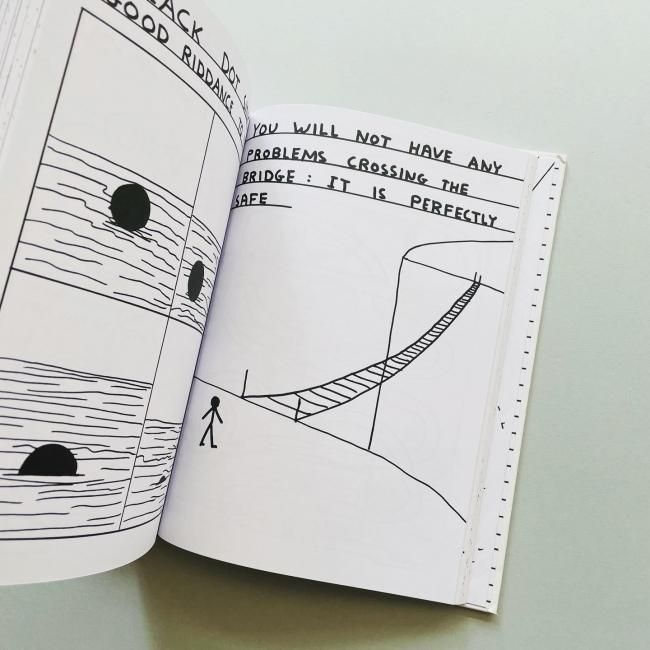 DOT
GOOD RIDDANCE
YOU WILL NOT HAVE ANY
PROBLEMS CROSSING THE
BRIDGE : IT IS PERFECTLY
SAFE